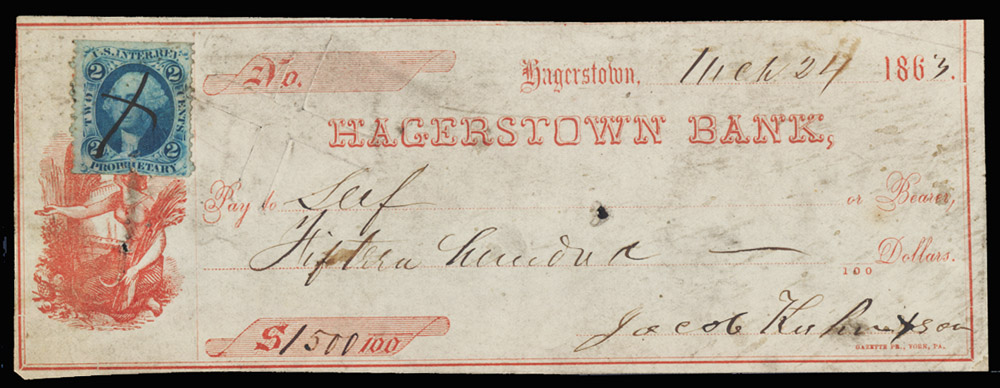 U.S. INTER. REV.
2 2
TWO CENTS
2 2
PROPRIETARY
No.
Hagerstown, Mch 24 1863.
HAGERSTOWN BANK,
Pay to Self or Bearer,
Fifteen hundred — 100 Dollars.
$1500 100
Jacob
GAZETTE PR., YORK, PA.